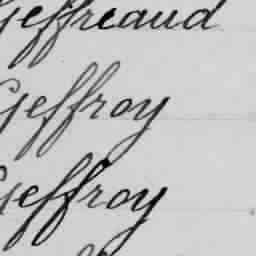 Geffreaud
Geffroy
Geffroy